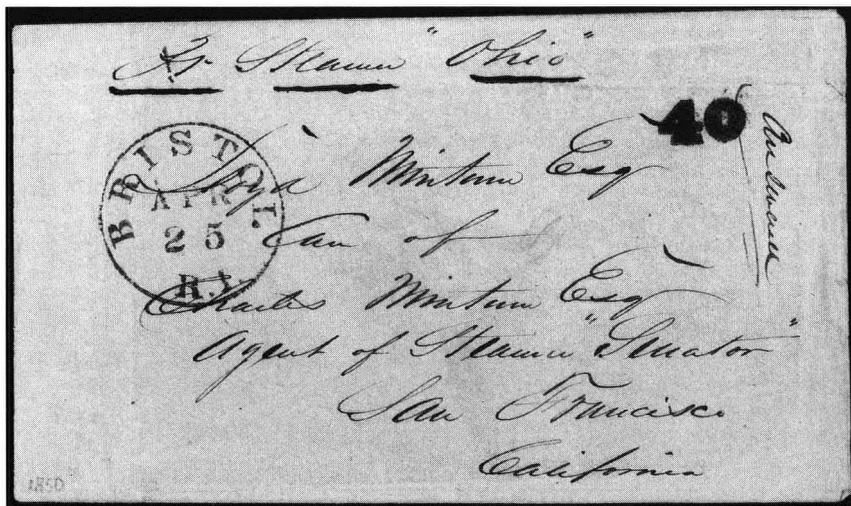 Pr Steamer "Ohio"
40
Answered
BRISTOL
APR
25
R.I.
Lloyd Minturn Esq
Care of
Charles Minturn Esq
Agent of Steamer "Senator"
San Francisco
California
1850